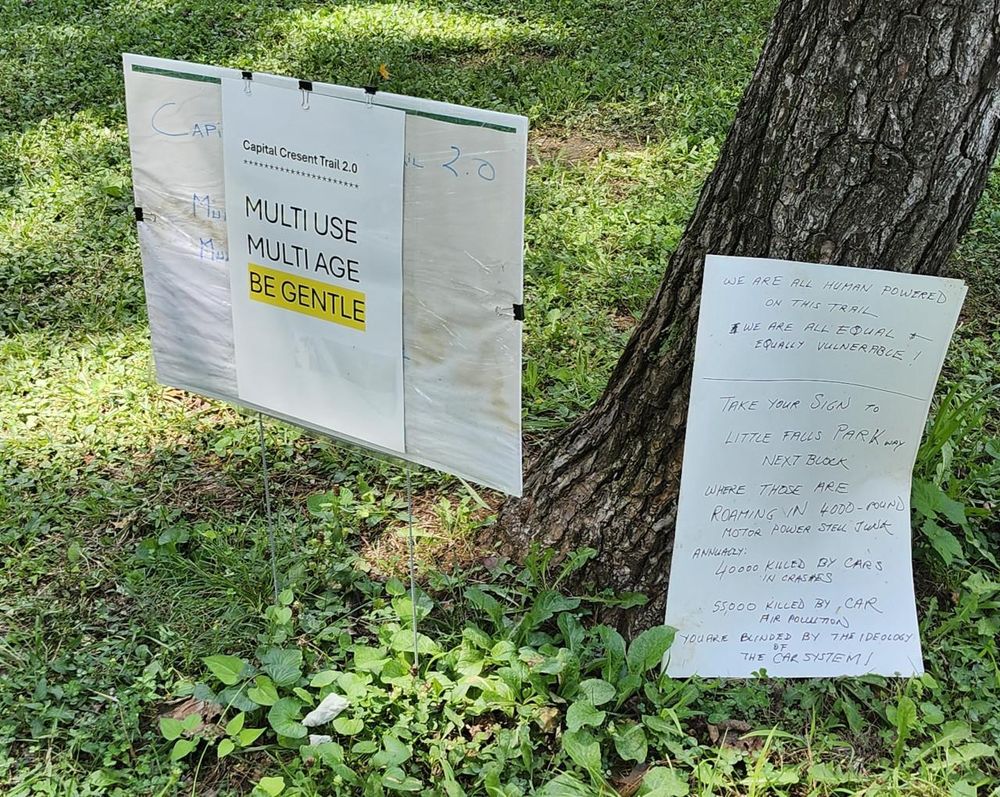 Capital Cresent Trail 2.0
********************
MULTI USE
MULTI AGE
BE GENTLE
CAPI
IL 2.0
MU
MU
WE ARE ALL HUMAN POWERED
ON THIS TRAIL
WE ARE ALL EQUAL +
EQUALLY VULNERABLE!
TAKE YOUR SIGN TO
LITTLE FALLS PARKWAY
NEXT BLOCK
WHERE THOSE ARE
ROAMING IN 4000-POUND
MOTOR POWER STELL JUNK
ANNUALLY:
40000 KILLED BY CARS
IN CRASHES
55000 KILLED BY CAR
AIR POLLUTION
YOU ARE BLINDED BY THE IDEOLOGY
OF
THE CAR SYSTEM!